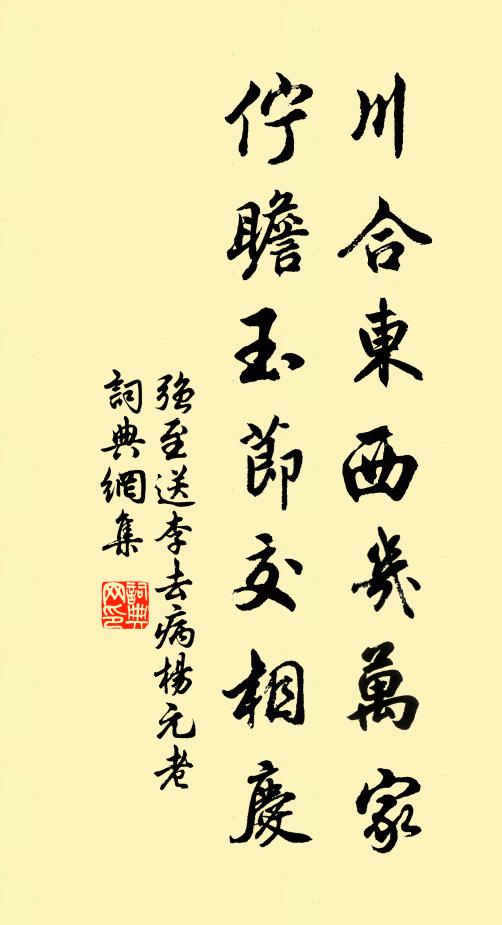 川合東西幾萬家
佇瞻玉節交相慶
強至送李去病楊元老
詞典網集
詞典网印